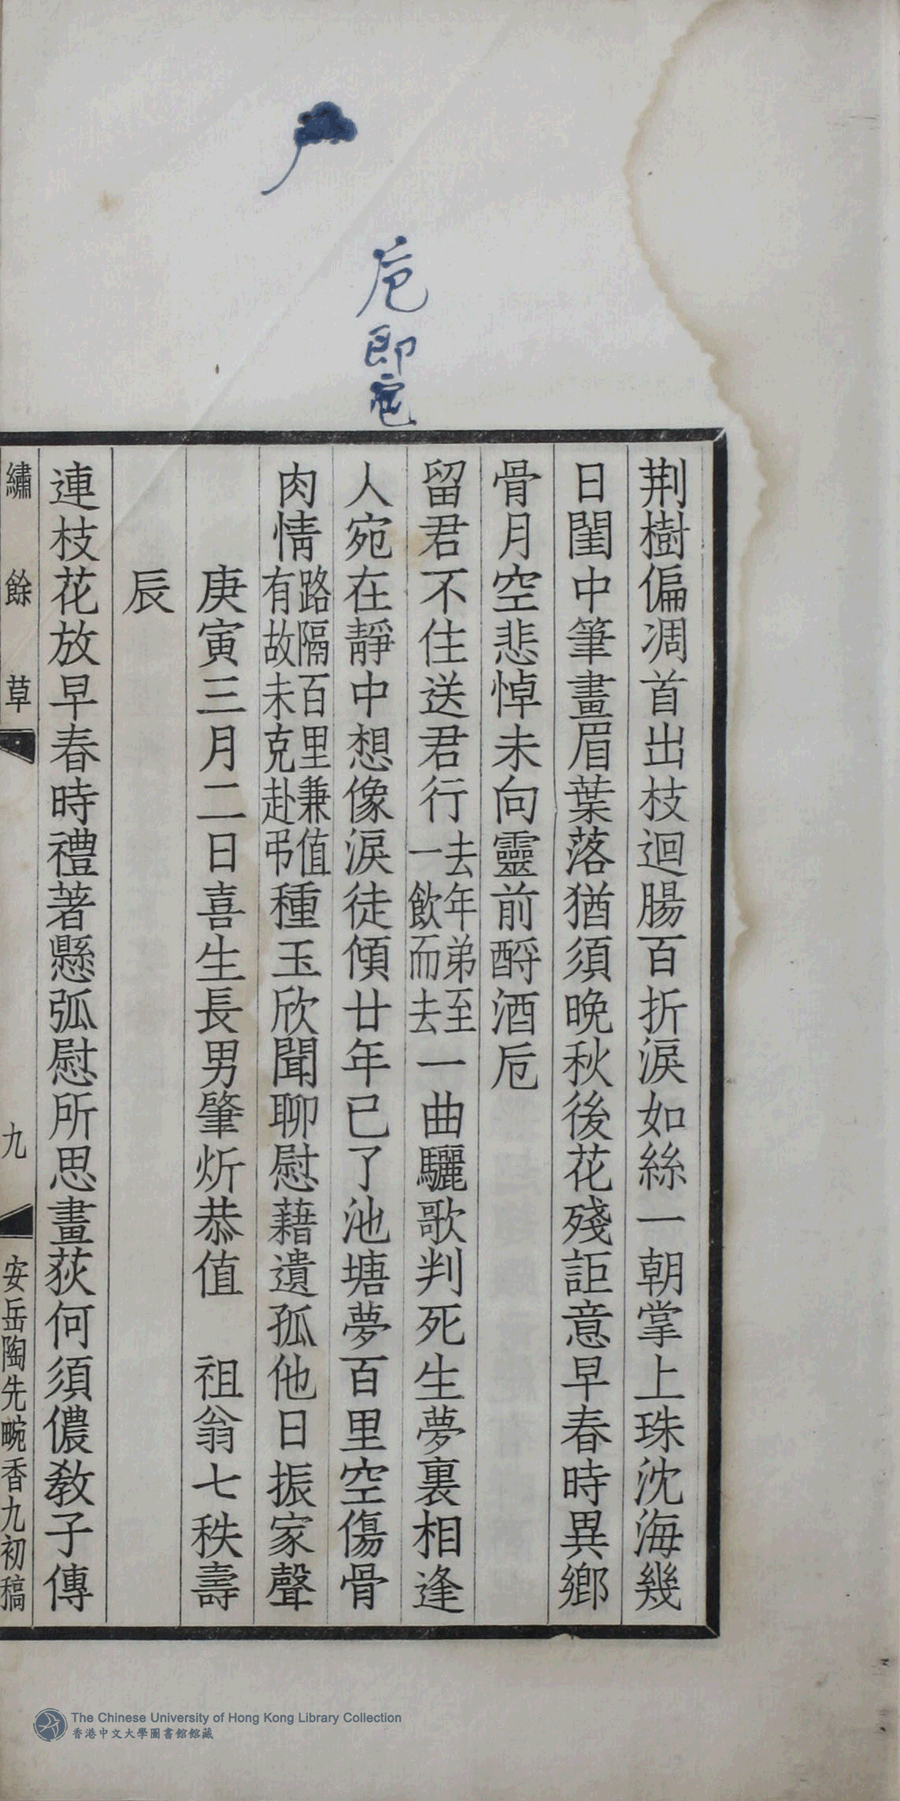 卮即卮
荆樹偏凋首出枝迴腸百折淚如絲一朝掌上珠沈海幾
日閨中筆畫眉葉落猶須晚秋後花殘詎意早春時異鄉
骨月空悲悼未向靈前酹酒卮
留君不住送君行去年弟至一飲而去一曲驪歌判死生夢裏相逢
人宛在靜中想像淚徒傾廿年已了池塘夢百里空傷骨
肉情路隔百里兼值有故未克赴弔種玉欣聞聊慰藉遺孤他日振家聲
庚寅三月二日喜生長男肇炘恭值　祖翁七秩壽
辰
連枝花放早春時禮著懸弧慰所思畫荻何須儂教子傳
繡餘草　九　安岳陶先畹香九初稿
The Chinese University of Hong Kong Library Collection
香港中文大學圖書館館藏